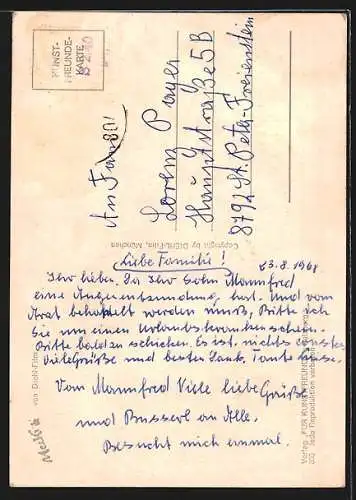 KUNST-
FREUNDE-
KARTE
An Fam
Lorenz Payer
Hauptstraße 5B
8792 St. Peter-Freienstein
Copyright by DIEHL-Film, München
Liebe Familie!
23.8.1968
Ihr lieben. Da Ihr Sohn Mannfred
eine Augenentzündung hat. Und vom
Arzt behandelt werden muß, Bitte ich
Sie um einen Urlaubskrankenschein.
Bitte bald zu schicken. Es ist nichts ernstes
Viele Grüße und besten Dank. Tante
Vom Mannfred Viele liebe Grüße
und Busserl an Alle.
Besucht mich einmal.
von Diehl-Film
Verlag „FÜR KUNSTFREUNDE"
Jede Reproduktion verboten